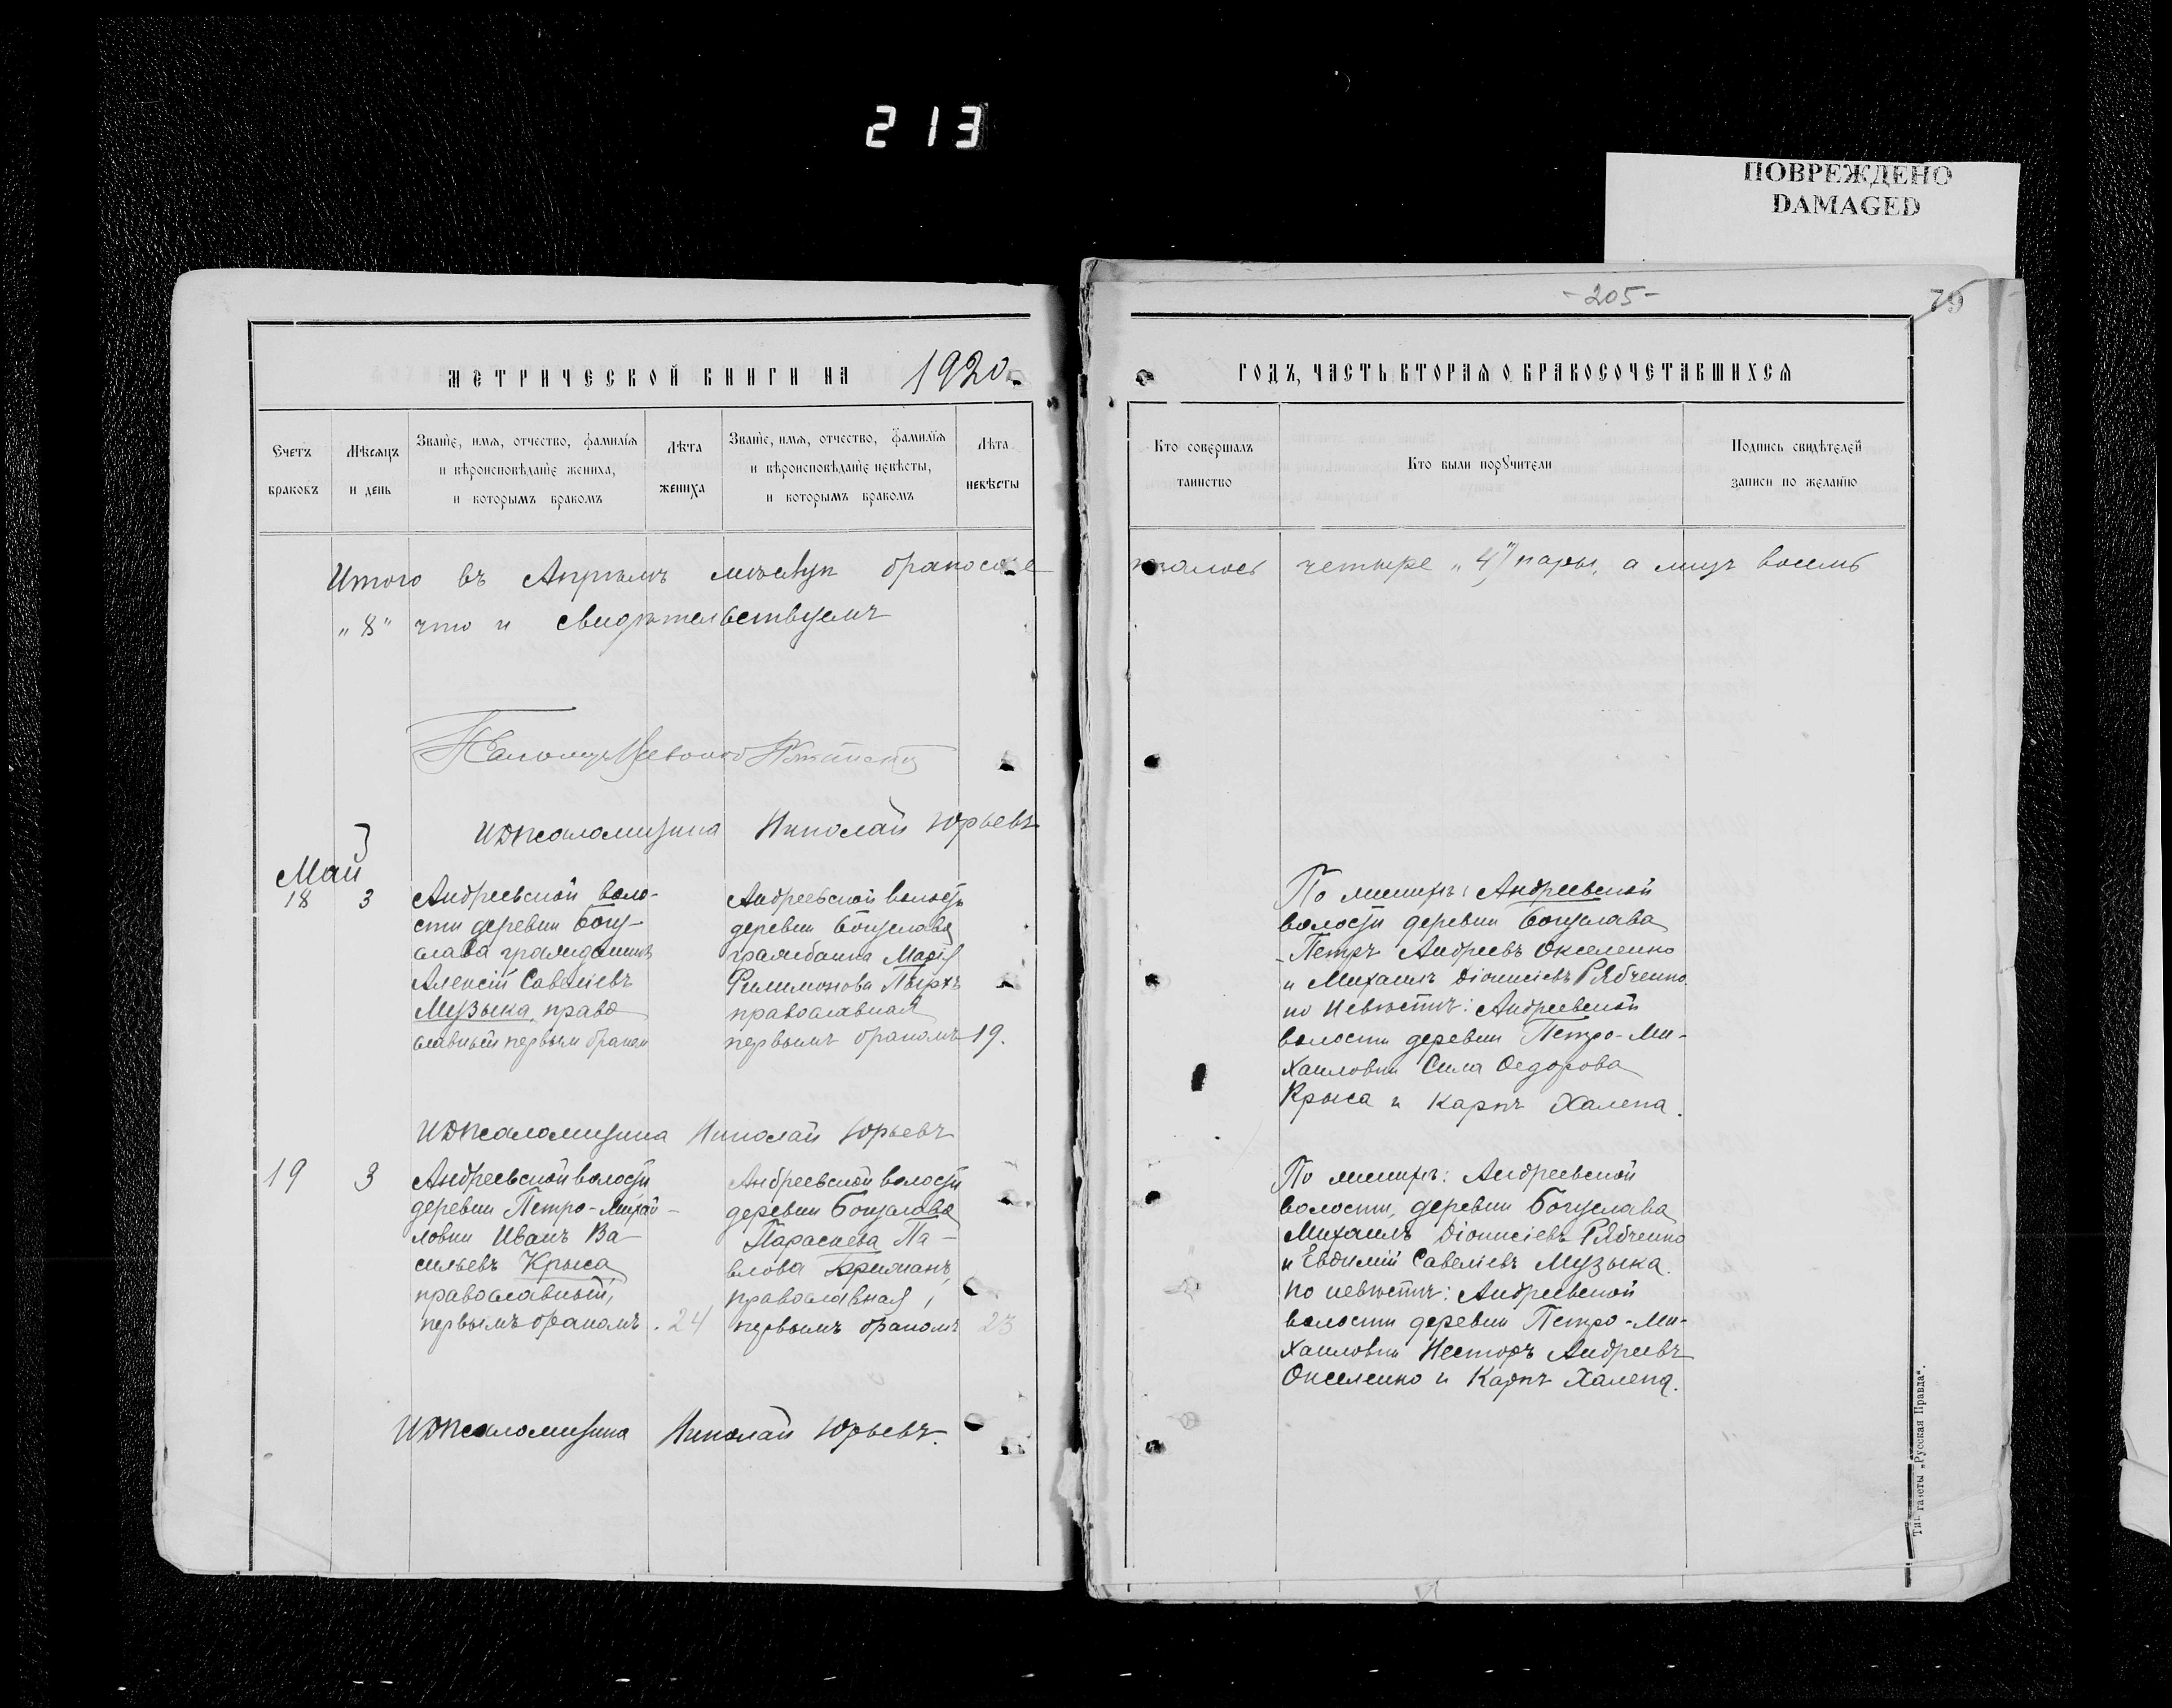 213
ПОВРЕЖДЕНО
DAMAGED
МЕТРИЧЕСКОЙ КНИГИ НА 1920
Счетъ браковъ
Мѣсяцъ и день
Званіе, имя, отчество, фамилія
и вѣроисповѣданіе жениха,
и которымъ бракомъ
Лѣта жениха
Званіе, имя, отчество, фамилія
и вѣроисповѣданіе невѣсты,
и которымъ бракомъ
Лѣта невѣсты
Итого въ Апрѣлѣ мѣсяцѣ бракосоче
"8" что и свидѣтельствуемъ
И.д. псаломщика Николай Юрьевъ
Май
18 3
Андреевской воло-
сти деревни Богу-
слава гражданинъ
Алексій Савеліевъ
Музыка, право
славный первым браком
Андреевской волости
деревни Богуслава
гражданка Марія
Филимонова
православная
первымъ бракомъ 19.
И.д. псаломщика Николай Юрьевъ
19 3
Андреевской волости
деревни Петро-Михай-
ловки Иванъ Ва-
сильевъ Крыса
православный,
первымъ бракомъ. 24
Андреевской волости
деревни Богуслава
Параскева Па-
влова
православная,
первымъ бракомъ 23
И.д. псаломщика Николай Юрьевъ.
-205-
79
ГОДЪ, ЧАСТЬ ВТОРАЯ О БРАКОСОЧЕТАВШИХСЯ
Кто совершалъ
таинство
Кто были порꙋчители
Подпись свидѣтелей
записи по желанію
талось четыре "4" пары, а лицъ восемь
По женихѣ: Андреевской
волости деревни Богуслава
Петръ Андреевъ Окселенко
и Михаилъ Діонисіевъ Рябченко
по невѣстѣ: Андреевской
волости деревни Петро-Ми-
хайловки Сила Ѳедорова
Крыса и Карпъ Халепа.
По женихѣ: Андреевской
волости, деревни Богуслава
Михаилъ Діонисіевъ Рябченко
и Евдимій Савеліевъ Музыка.
По невѣстѣ: Андреевской
волости деревни Петро-Ми-
хайловки Несторъ Андреевъ
Окселенко и Карпъ Халепа.
Тип. газеты „Русская Правда".